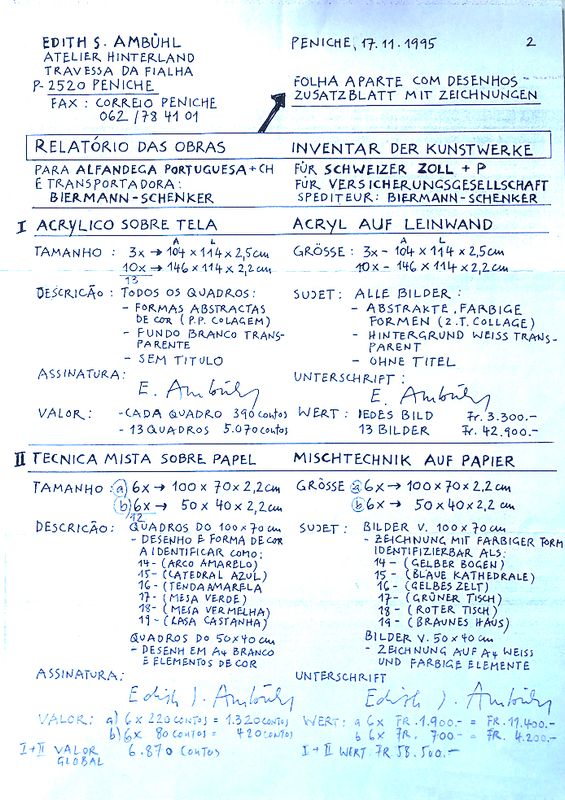 EDITH S. AMBÜHL
ATELIER HINTERLAND
TRAVESSA DA FIALHA
P-2520 PENICHE
FAX: CORREIO PENICHE
062/78 41 01
PENICHE, 17.11.1995
2
FOLHA APARTE COM DESENHOS -
ZUSATZBLATT MIT ZEICHNUNGEN
RELATÓRIO DAS OBRAS
INVENTAR DER KUNSTWERKE
PARA ALFANDEGA PORTUGUESA + CH
E TRANSPORTADORA:
BIERMANN-SCHENKER
FÜR SCHWEIZER ZOLL + P
FÜR VERSICHERUNGSGESELLSCHAFT
SPEDITEUR: BIERMANN-SCHENKER
I ACRYLICO SOBRE TELA
ACRYL AUF LEINWAND
A L
TAMANHO: 3x → 104 x 114 x 2,5 cm
10x → 146 x 114 x 2,2 cm
13
A L
GRÖSSE: 3x - 104 x 114 x 2,5 cm
10x - 146 x 114 x 2,2 cm
DESCRICÃO: TODOS OS QUADROS:
- FORMAS ABSTRACTAS
DE COR (P.P. COLAGEM)
- FUNDO BRANCO TRANS-
PARENTE
- SEM TITULO
SUJET: ALLE BILDER:
- ABSTRAKTE, FARBIGE
FORMEN (Z.T. COLLAGE)
- HINTERGRUND WEISS TRANS-
PARENT
- OHNE TITEL
ASSINATURA:
E. Ambühl
UNTERSCHRIFT:
E. Ambühl
VALOR: - CADA QUADRO 390 contos
- 13 QUADROS 5.070 contos
WERT: JEDES BILD Fr. 3.300.-
13 BILDER Fr. 42.900.-
II TECNICA MISTA SOBRE PAPEL
MISCHTECHNIK AUF PAPIER
TAMANHO: a) 6x → 100 x 70 x 2,2 cm
b) 6x → 50 x 40 x 2,2 cm
12
GRÖSSE a 6x → 100 x 70 x 2,2 cm
b 6x → 50 x 40 x 2,2 cm
DESCRICÃO: QUADROS DO 100 x 70 cm
- DESENHO E FORMA DE COR
A IDENTIFICAR COMO:
14- (ARCO AMARELO)
15- (CATEDRAL AZUL)
16- (TENDA AMARELA
17- (MESA VERDE)
18- (MESA VERMELHA)
19- (CASA CASTANHA)
QUADROS DO 50x40 cm
- DESENH EM A4 BRANCO
E ELEMENTOS DE COR
SUJET: BILDER V. 100 x 70 cm
- ZEICHNUNG MIT FARBIGER FORM
IDENTIFIZIERBAR ALS:
14 - (GELBER BOGEN)
15 - (BLAUE KATHEDRALE)
16 - (GELBES ZELT)
17 - (GRÜNER TISCH)
18 - (ROTER TISCH)
19 - (BRAUNES HAUS)
BILDER V. 50 x 40 cm
- ZEICHNUNG AUF A4 WEISS
UND FARBIGE ELEMENTE
ASSINATURA:
Edith S. Ambühl
UNTERSCHRIFT
Edith S. Ambühl
VALOR: a) 6 x 220 CONTOS = 1.320 CONTOS
b) 6x 80 CONTOS = 480 CONTOS
WERT: a 6x FR. 1.900.- = FR. 11.400.-
b 6x FR. 700.- = FR. 4.200.-
I+II VALOR 6.870 CONTOS
GLOBAL
I+II WERT. FR 58.500.-